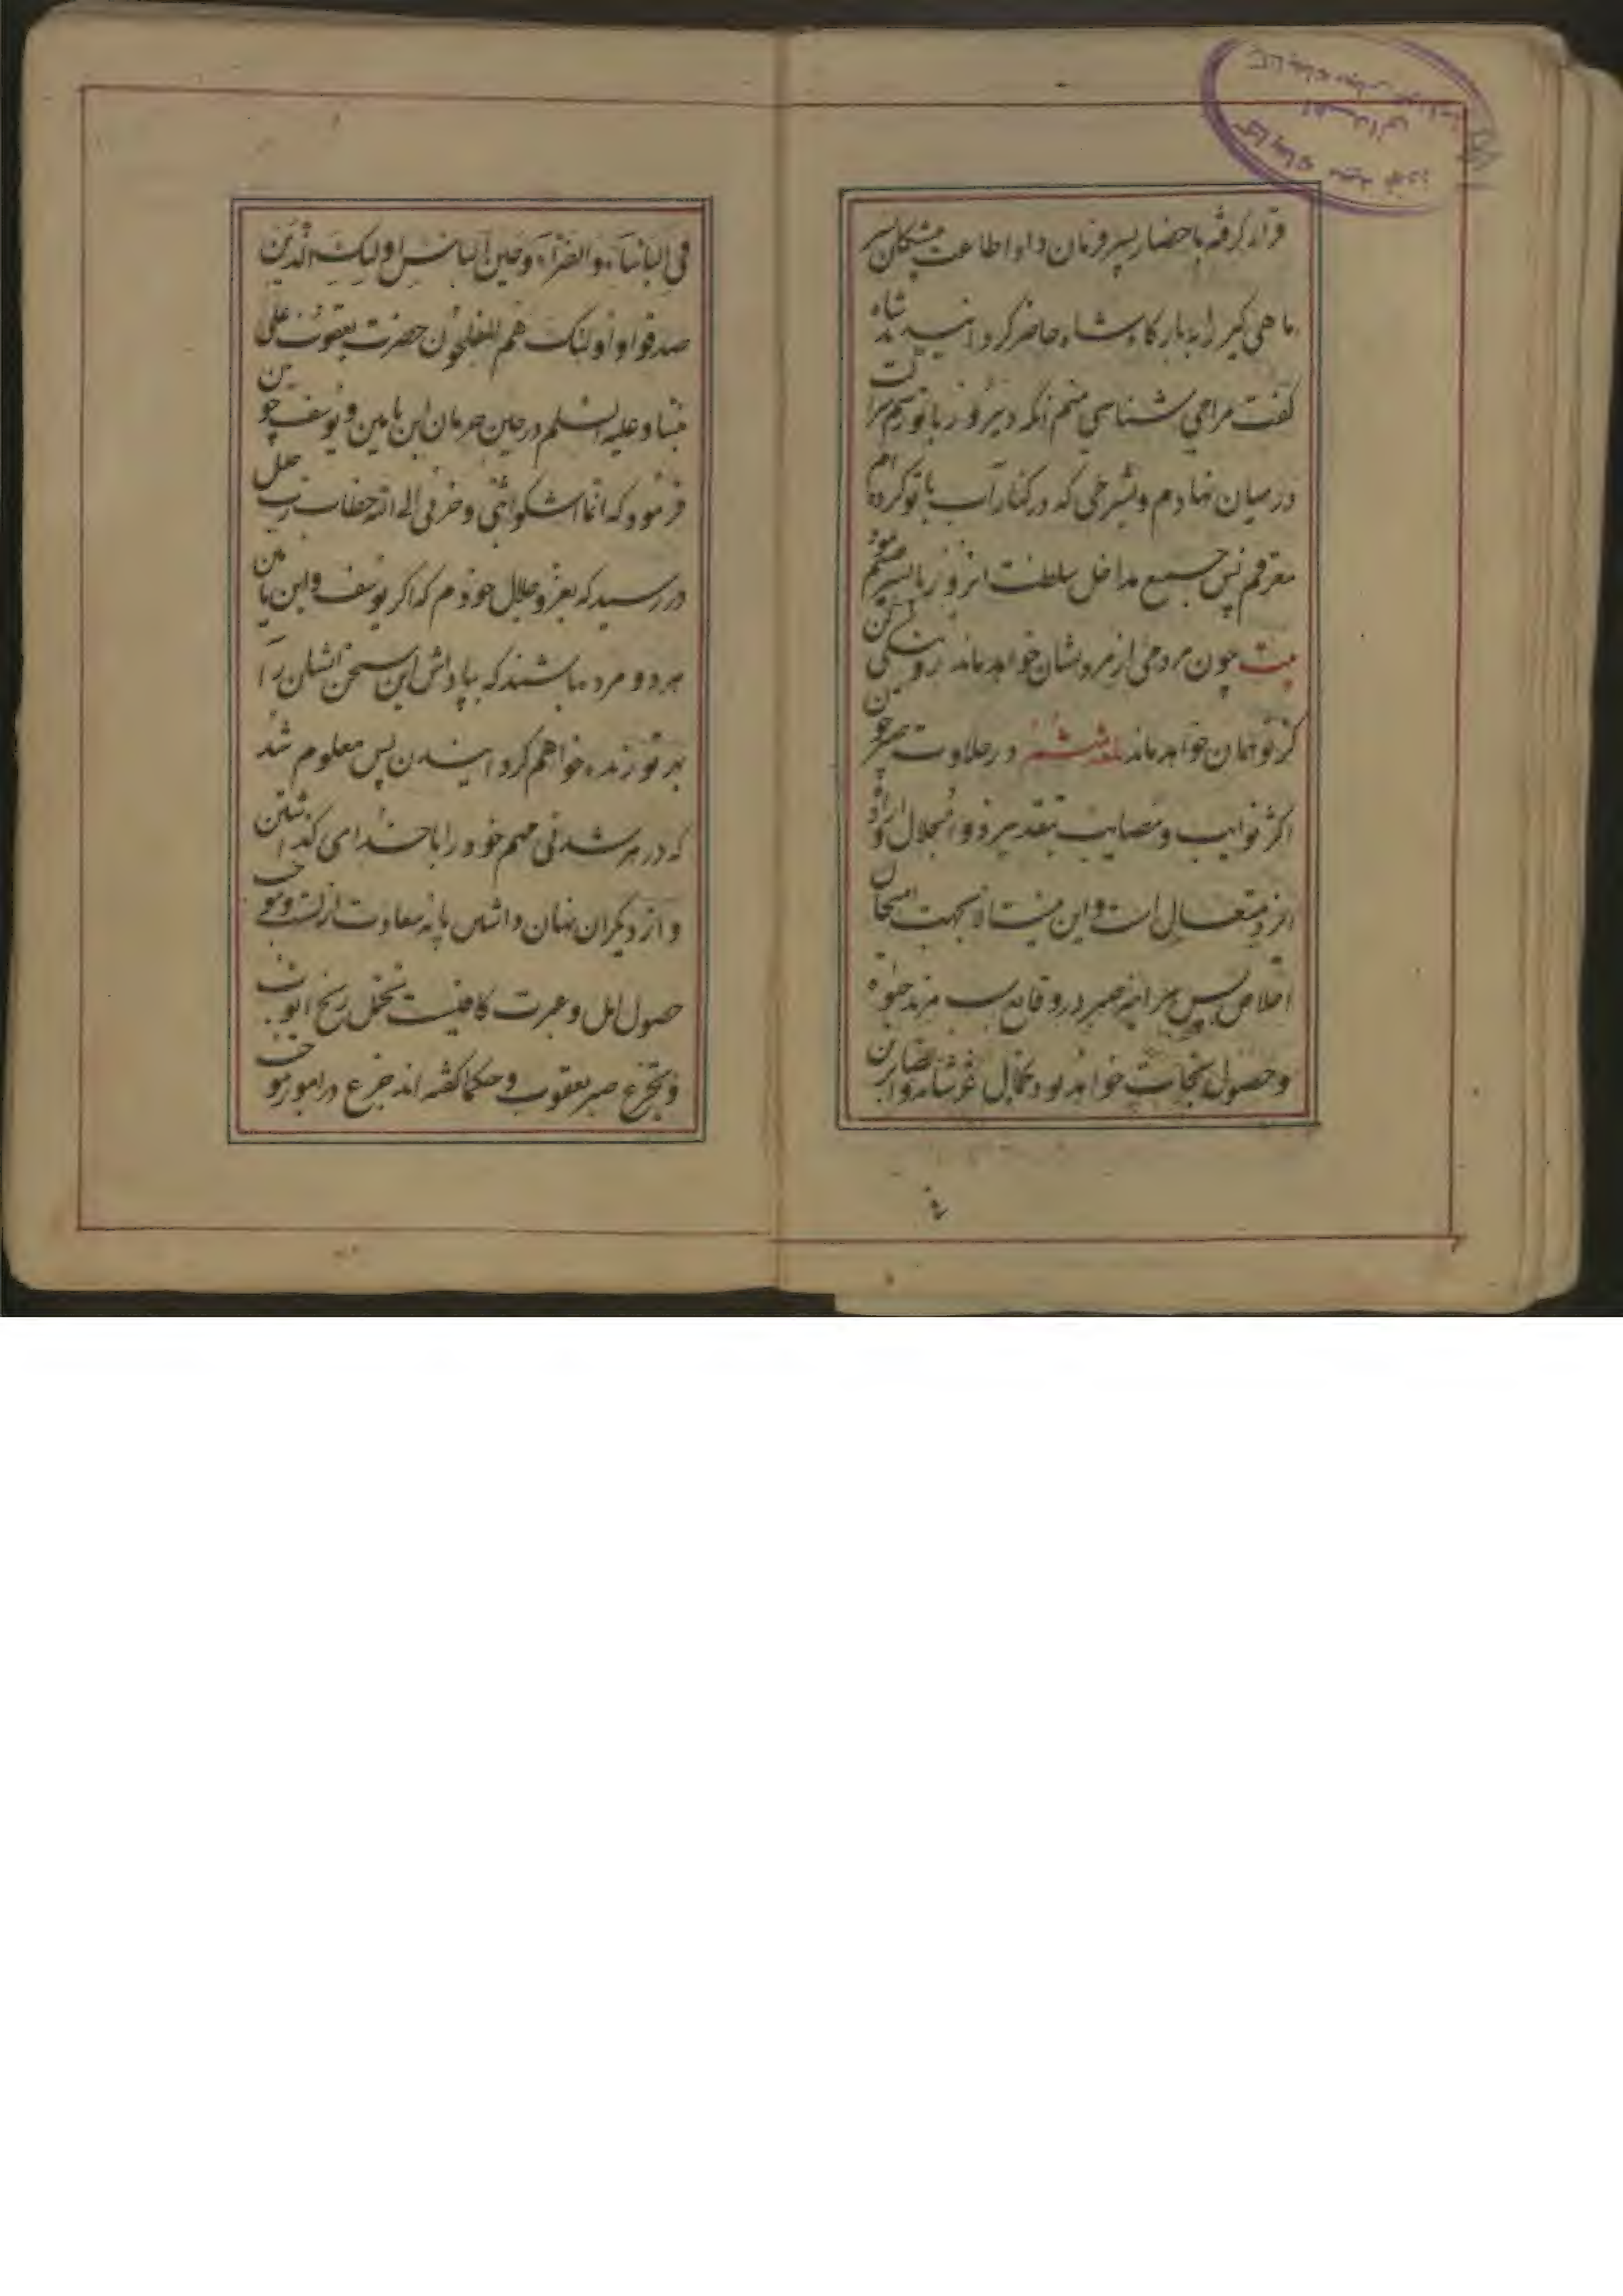 قرار گرفته باحضار پسر فرمان داد اطاعت پیشکان پسر
ماهی گیر را به بارگاه شاه حاضر گردانیدند شاه
گفت مرا می شناسی منم آنکه دیروز با تو
در میان نهادم و بشرطی که در کنار آب با تو کرده ام
معترفم پس جمیع مداخل سلطنت امروز را
بیت چون مردمی از مردمشان خواهد ماند نیکی کن
کز تو همان خواهد ماند ششم در حلاوت صبر چون
اکثر نوایب و مصایب بتقدیر و انحلال اراده
ایزد متعال است و این بجهت امتحان
اخلاص پس هر آینه صبر در وقایع جلوه
و حصول نجات خواهد بود کمال عز شانه و الصابرین
فی البأساء و الضراء و حین البأس اولیک الذین
صدقوا و اولئک هم المفلحون حضرت یعقوب علی
نبینا و علیه السلم در حین حرمان ابن یامین و یوسف چون
فرمود که انما اشکوا بثی و حزنی الی الله خطاب رب جلیل
در رسید که بعز و جلال خودم که اگر یوسف و ابن یامین
هر دو مرده باشند که بپاداش این سخن ایشان را
بر تو زنده خواهم گردانیدن پس معلوم شد
که در هر شدتی مهم خود را با خدای گذاشتن
و از دیگران نهان داشتن
حصول امل و عبرت کافیست تحمل رنج ایوب
و تجرع صبر یعقوب و حکما گفته اند جزع در امور